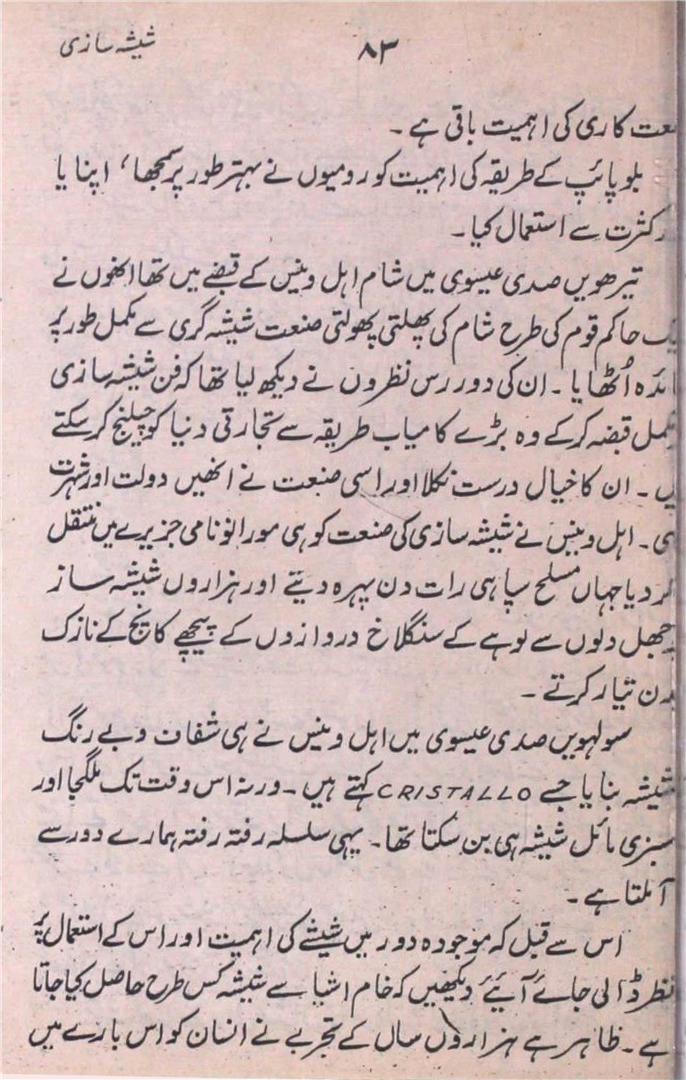 شیشہ سازی
۸۳
صنعت کاری کی اہمیت باقی ہے۔
بلو پائپ کے طریقہ کی اہمیت کو رومیوں نے بہتر طور پر سمجھا، اپنایا
کثرت سے استعمال کیا۔
تیرھویں صدی عیسوی میں شام اہل وینس کے قبضے میں تھا انھوں نے
ایک حاکم قوم کی طرح شام کی پھلتی پھولتی صنعت شیشہ گری سے مکمل طور پر
فائدہ اُٹھایا۔ ان کی دور رس نظروں نے دیکھ لیا تھا کہ فن شیشہ سازی
مکمل قبضہ کر کے وہ بڑے کامیاب طریقہ سے تجارتی دنیا کو چیلنج کر سکتے
ہیں۔ ان کا خیال درست نکلا اور اسی صنعت نے انھیں دولت اور شہرت
دی۔ اہل وینس نے شیشہ سازی کی صنعت کو ہی مورانو نامی جزیرے میں منتقل
کر دیا جہاں مسلح سپاہی رات دن پہرہ دیتے اور ہزاروں شیشہ ساز
بوجھل دلوں سے لوہے کے سنگلاخ دروازوں کے پیچھے کانچ کے نازک
بدن تیار کرتے۔
سولہویں صدی عیسوی میں اہل وینس نے ہی شفاف و بے رنگ
شیشہ بنایا جسے CRISTALLO کہتے ہیں۔ ورنہ اس وقت تک ملگجا اور
سبزی مائل شیشہ ہی بن سکتا تھا۔ یہی سلسلہ رفتہ رفتہ ہمارے دور سے
آملتا ہے۔
اس سے قبل کہ موجودہ دور میں شیشے کی اہمیت اور اس کے استعمال پر
نظر ڈالی جائے آیئے دیکھیں کہ خام اشیا سے شیشہ کس طرح حاصل کیا جاتا
ہے۔ ظاہر ہے ہزاروں سال کے تجربے نے انسان کو اس بارے میں